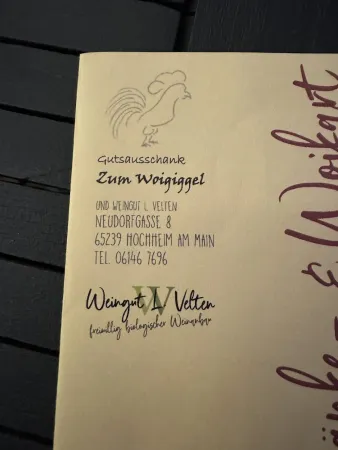 Gutsausschank
Zum Woigiggel
UND WEINGUT L. VELTEN
NEUDORFGASSE 8
65239 HOCHHEIM AM MAIN
TEL. 06146 7696
W
Weingut L. Velten
freiwillig biologischer Weinanbau
& Woikart